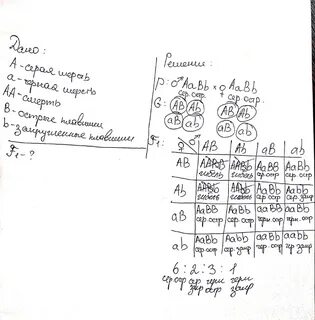 Дано:
А - серая шерсть
а - чёрная шерсть
АА - смерть
В - острые плавники
b - закругленные плавники
F₁ - ?
Решение:
P: ♂ AaBb × ♀ AaBb
сер. остр. сер. остр.
G: AB Ab AB Ab
aB ab aB ab
F₁:
♀ ♂ AB Ab aB ab
AB AABB гибель AABb гибель AaBB сер остр AaBb сер остр
Ab AABb гибель AAbb гибель AaBb сер остр Aabb сер закр
aB AaBB сер остр AaBb сер остр aaBB черн остр aaBb черн. остр
ab AaBb сер остр Aabb сер закр aaBb чер. остр aabb чер закр
6 : 2 : 3 : 1
сер остр сер закр черн остр черн закр